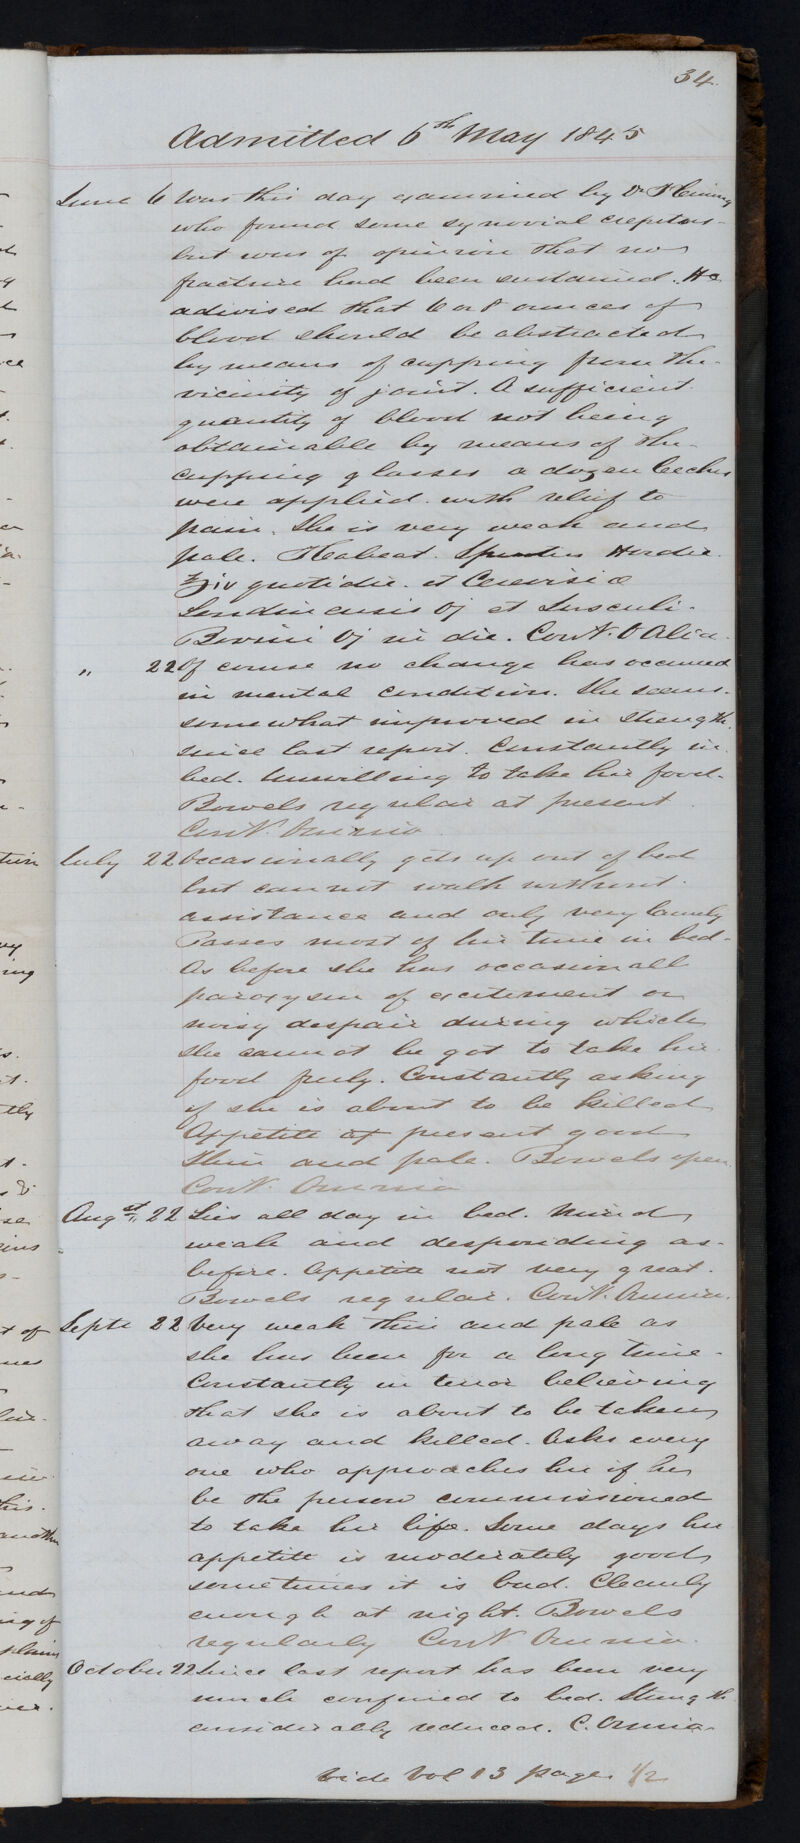 34.
Admitted 6th May 1845
June 6 Was this day examined by Dr Fleming
who found some synovial crepitus
but was of opinion that no
fracture had been sustained. He
adivised that 6 or 8 ounces of
blood should be abstracted
by means of cupping from the
vicinity of joint. A sufficient
quantity of blood not being
obtainable by means of the
cupping glasses a dozen leeches
were applied with relief to
pain. She is very weak and
pale. Habeat. Hordei
℥iv quotidie. et Cerevisiæ
Londinensis Oj et Jusculi
Bovini Oj in die. Cont. Alia.
" 22 Of course no change has occurred
in mental condition. She seems
somewhat improved in strength
since last report. Constantly in
bed. Unwilling to take her food.
Bowels regular at present.
Cont. Omnia.
July 22 Occasionally gets up out of bed
but cannot walk without
assistance and only very lamely
Passes most of her time in bed.
As before she has occasionall
paroxysm of excitement or
noisy despair during which
she cannot be got to take her
food freely. Constantly asking
if she is about to be killed
Appetite at present good
thin and pale. Bowels open.
Cont. Omnia
Augst 22 Lies all day in bed. Mind
weak and desponding as
before. Appetite not very great.
Bowels regular. Cont. Omnia.
Septr 22 Very weak thin and pale as
she has been for a long time.
Constantly in terror believing
that she is about to be taken
away and killed. Asks every
one who approaches her if he
be the person commissioned
to take her life. Some days her
appetite is moderately good
sometimes it is bad. Cleanly
enough at night. Bowels
regularly Cont Omnia.
October 22 Since last report has been very
much confined to bed. Strength
considerably reduced. C. Omnia
Vide Vol 13 page 1/2